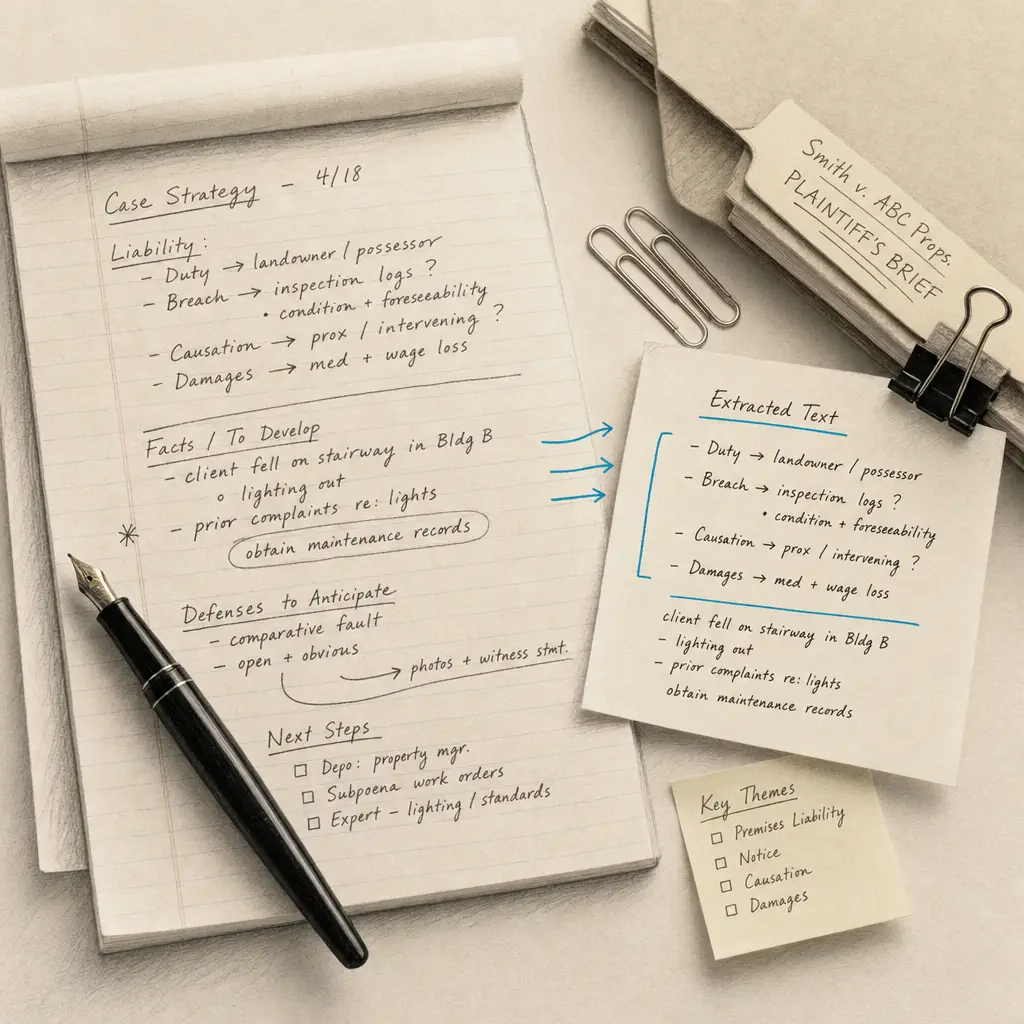 Case Strategy – 4/18
Liability:
- Duty → landowner / possessor
- Breach → inspection logs ?
• condition + foreseeability
- Causation → prox / intervening ?
- Damages → med + wage loss
Facts / To Develop
- client fell on stairway in Bldg B
o lighting out
- prior complaints re: lights
* obtain maintenance records
Defenses to Anticipate
- comparative fault
- open + obvious
→ photos + witness stmt.
Next Steps
☐ Depo: property mgr.
☐ Subpoena work orders
☐ Expert – lighting / standards
Smith v. ABC Props.
PLAINTIFF'S BRIEF
Extracted Text
- Duty → landowner / possessor
- Breach → inspection logs ?
• condition + foreseeability
- Causation → prox / intervening ?
- Damages → med + wage loss
client fell on stairway in Bldg B
- lighting out
- prior complaints re: lights
obtain maintenance records
Key Themes
☐ Premises Liability
☐ Notice
☐ Causation
☐ Damages